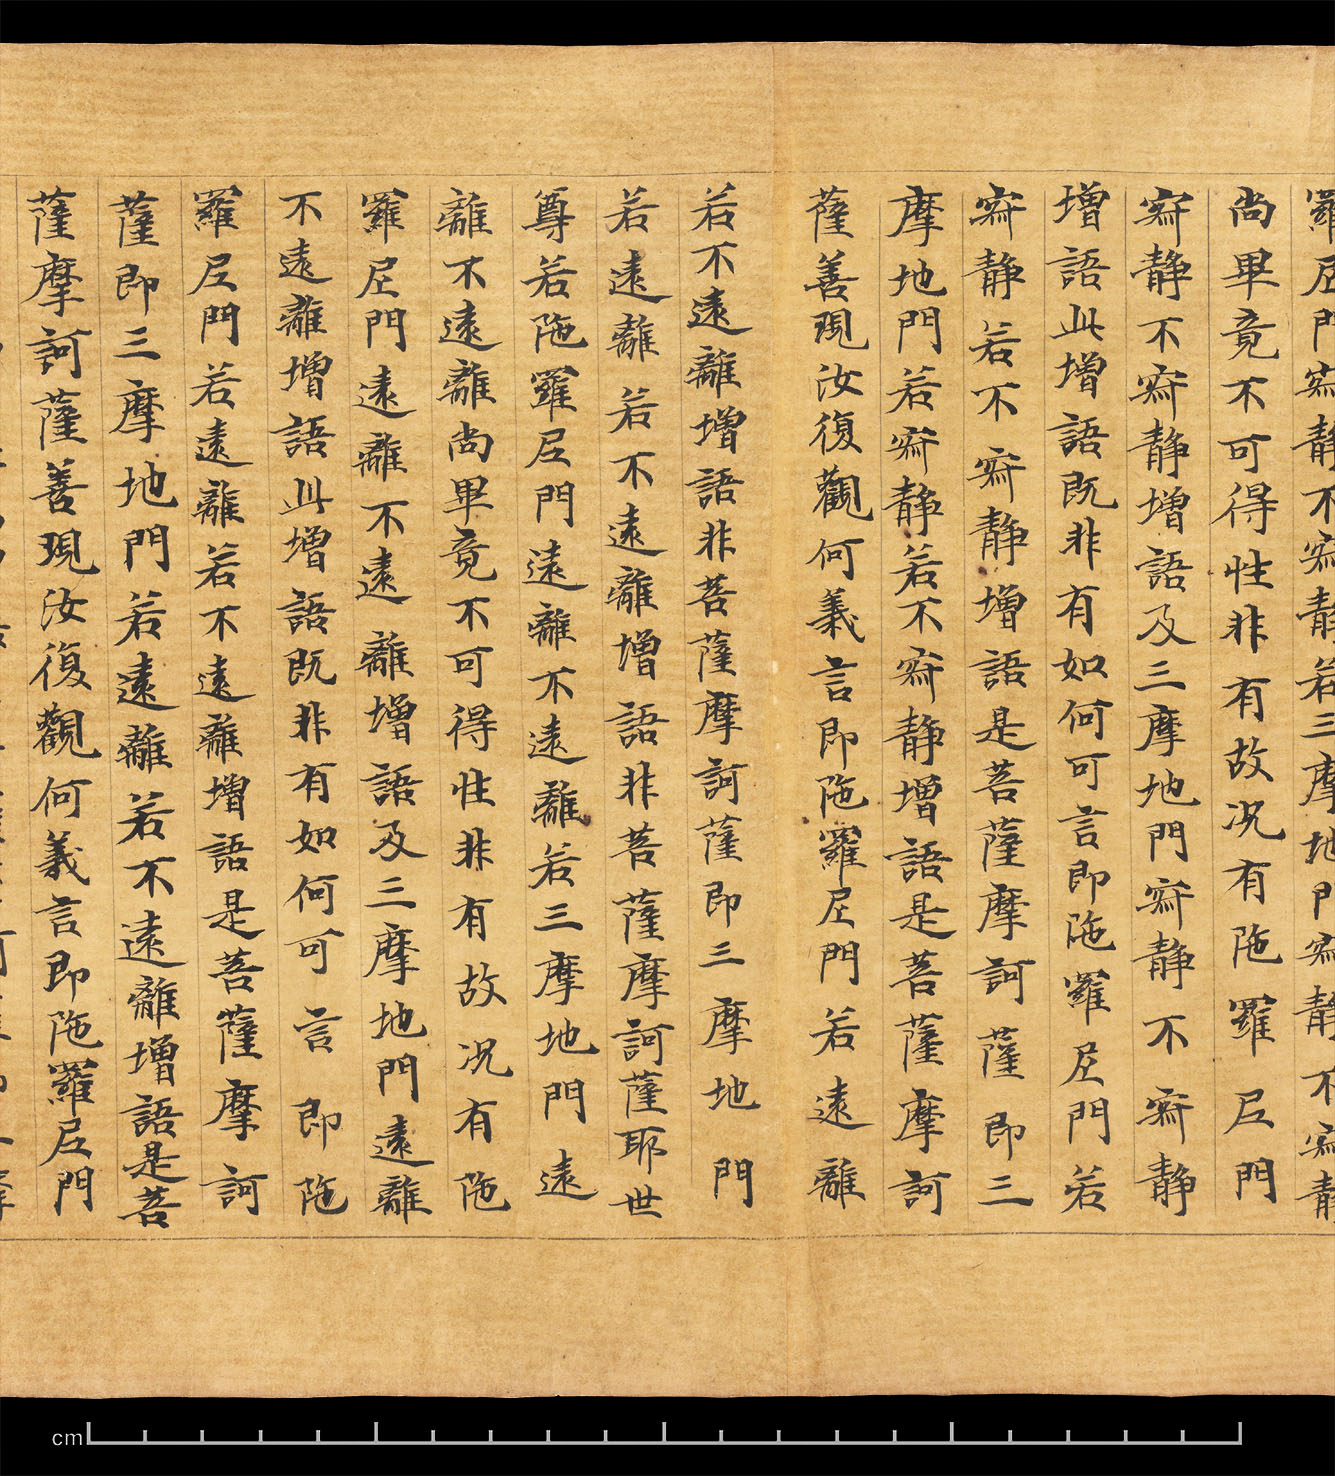 羅尼門寂静不寂静若三摩地門寂静不寂静
尚畢竟不可得性非有故况有陁羅尼門
寂静不寂静增語及三摩地門寂静不寂静
增語此增語既非有如何可言即陁羅尼門若
寂静若不寂静增語是菩薩摩訶薩即三
摩地門若寂静若不寂静增語是菩薩摩訶
薩善現汝復觀何義言即陁羅尼門若遠離
若不遠離增語非菩薩摩訶薩即三摩地門
若遠離若不遠離增語非菩薩摩訶薩耶世
尊若陁羅尼門遠離不遠離若三摩地門遠
離不遠離尚畢竟不可得性非有故况有陁
羅尼門遠離不遠離增語及三摩地門遠離
不遠離增語此增語既非有如何可言即陁
羅尼門若遠離若不遠離增語是菩薩摩訶
薩即三摩地門若遠離若不遠離增語是菩
薩摩訶薩善現汝復觀何義言即陁羅尼門
cm